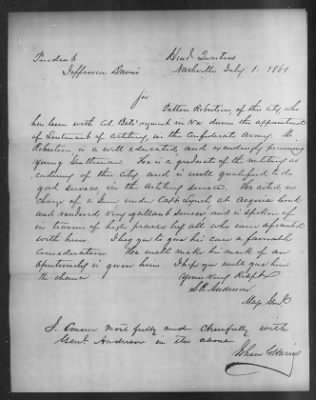 Head Quarters
Nashville July 1. 1861
President
Jefferson Davis
Sir
Felton Robertson, of this city who
has been with Col. Bate's regiment in Va desires the appointment
of Lieutenant of Artillery, in the Confederate Army. Mr
Robertson is a well educated, and exceedingly promising
young Gentleman. He is a graduate of the military ac
cademy of this city, and is well qualified to do
good service in the Artillery service. He acted in
charge of a Gun under Capt Lynch at Acquia Creek
and rendered very gallant service and is spoken of
in terms of high praise by all who were associated
with him I beg you to give his case a favorable
consideration. He will make his mark if an
opportunity is given him I hope you will give him
the chance Yours Very Respt
S. R. Anderson
Maj Genl
I concur most fully and cheerfully with
Genl. Anderson in the above
Isham G Harris